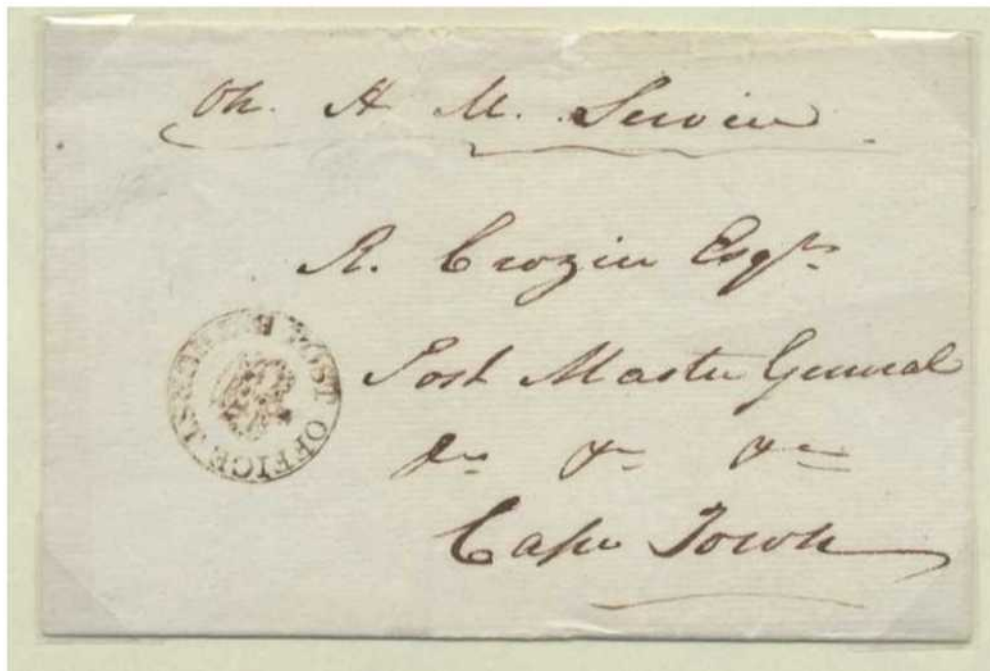 On. H. M. Service
R. Crozier Esqre
Post Master General
&c &c &c
Cape Town
POST OFFICE